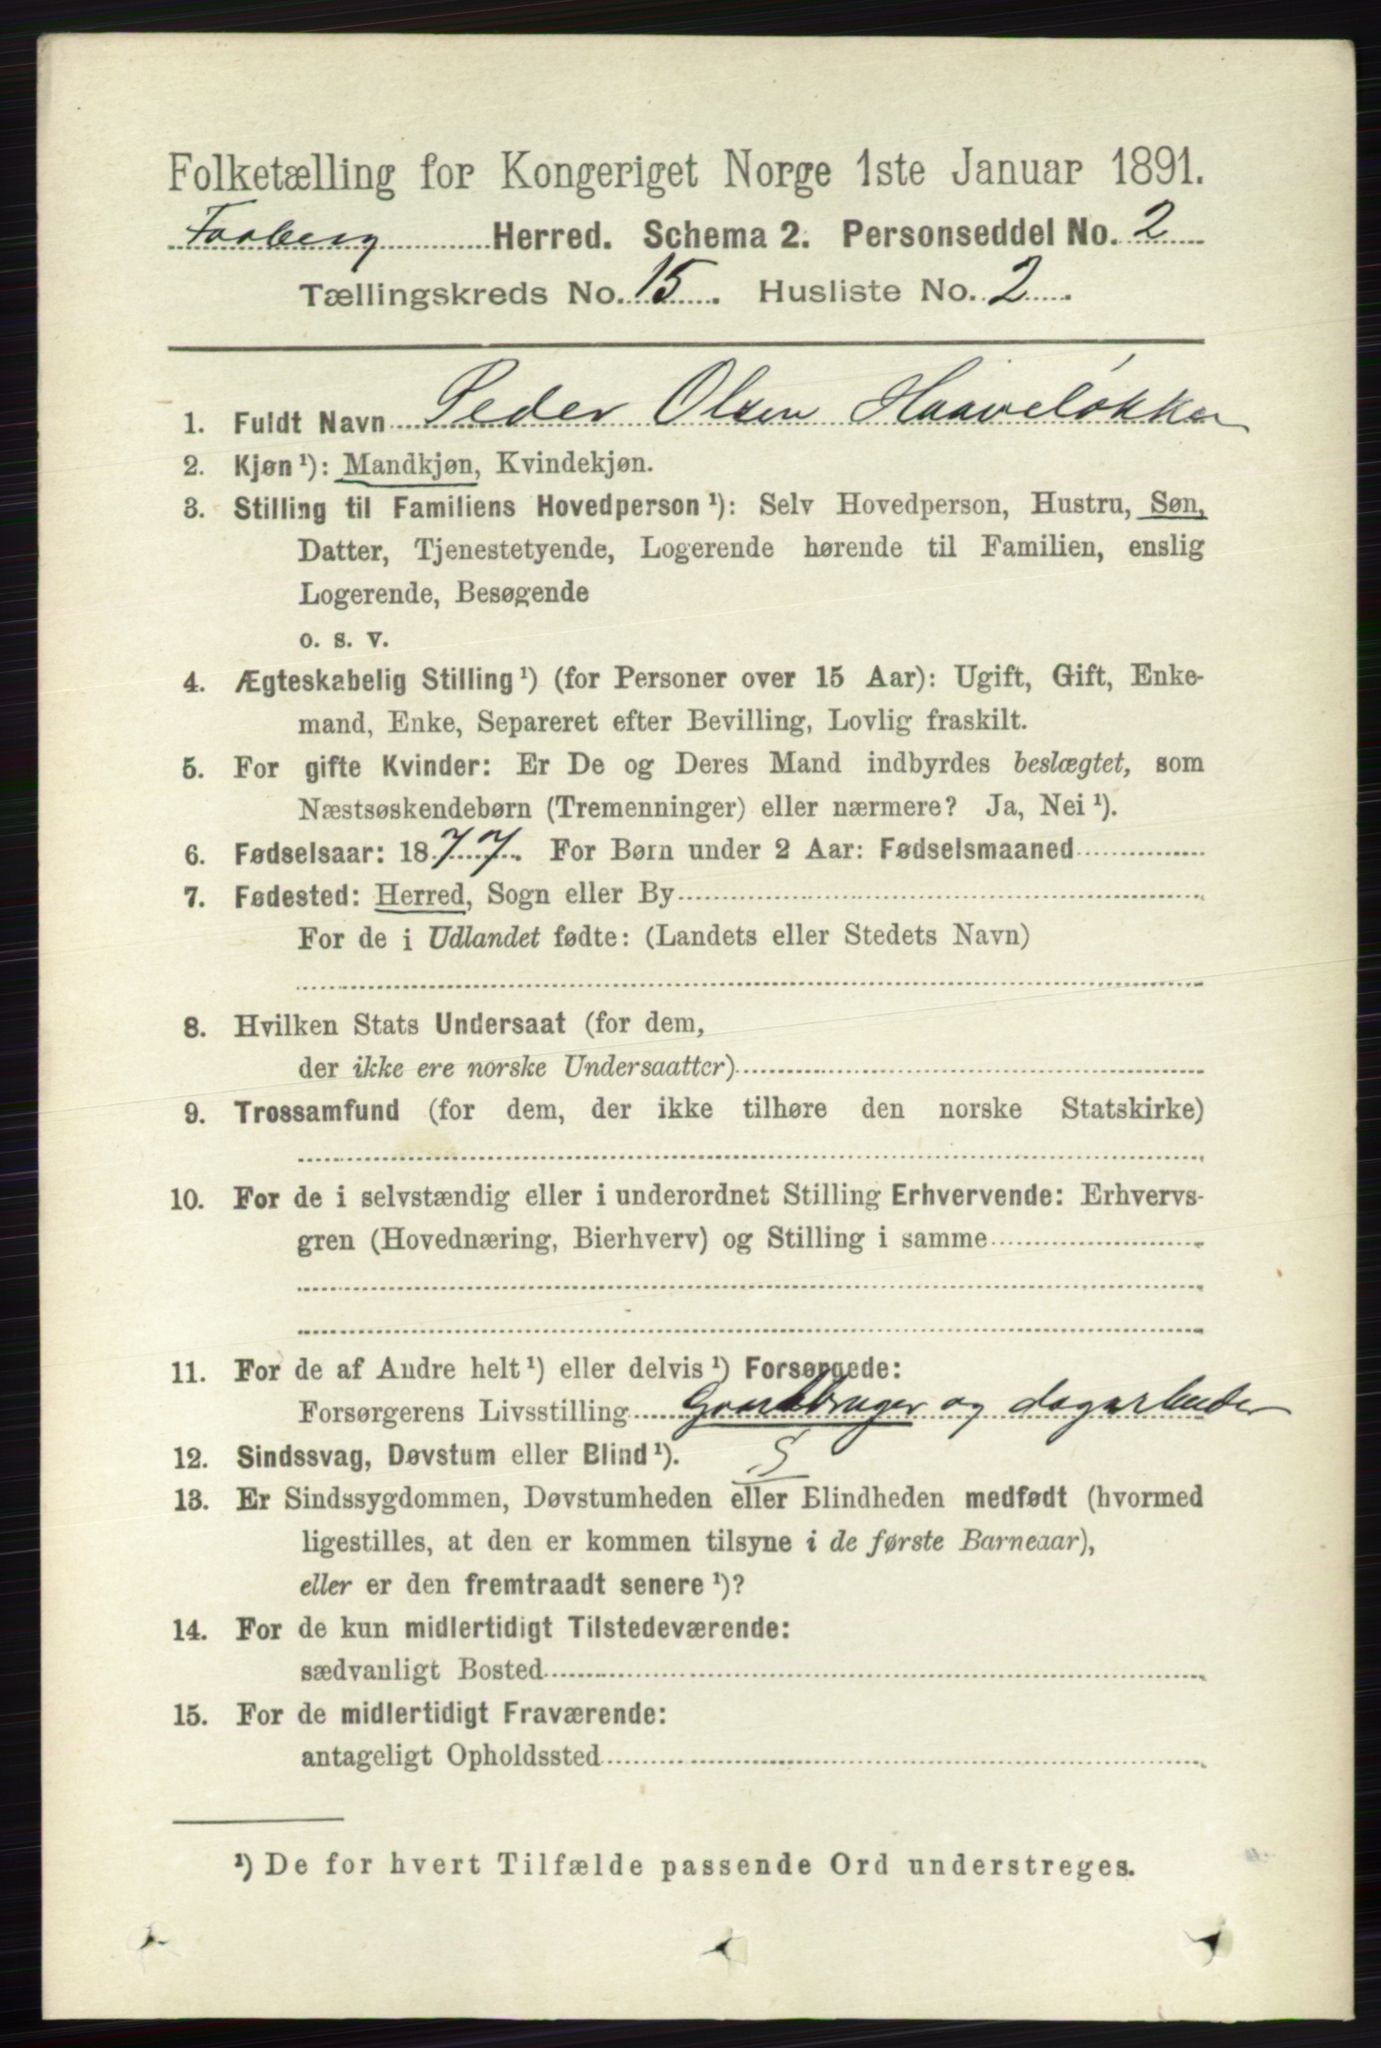 Folketælling for Kongeriget Norge 1ste Januar 1891.
Faaberg Herred. Schema 2. Personseddel No. 2
Tællingskreds No. 15. Husliste No. 2.
1. Fuldt Navn Peder Olsen Haaveløkken
2. Kjøn ¹): Mandkjøn, Kvindekjøn.
3. Stilling til Familiens Hovedperson ¹): Selv Hovedperson, Hustru, Søn,
Datter, Tjenestetyende, Logerende hørende til Familien, enslig
Logerende, Besøgende
o. s. v.
4. Ægteskabelig Stilling ¹) (for Personer over 15 Aar): Ugift, Gift, Enke-
mand, Enke, Separeret efter Bevilling, Lovlig fraskilt.
5. For gifte Kvinder: Er De og Deres Mand indbyrdes beslægtet, som
Næstsøskendebørn (Tremenninger) eller nærmere? Ja, Nei ¹).
6. Fødselsaar: 1877. For Børn under 2 Aar: Fødselsmaaned
7. Fødested: Herred, Sogn eller By
For de i Udlandet fødte: (Landets eller Stedets Navn)
8. Hvilken Stats Undersaat (for dem,
der ikke ere norske Undersaatter)
9. Trossamfund (for dem, der ikke tilhøre den norske Statskirke)
10. For de i selvstændig eller i underordnet Stilling Erhvervende: Erhvervs-
gren (Hovednæring, Bierhverv) og Stilling i samme
11. For de af Andre helt ¹) eller delvis ¹) Forsørgede:
Forsørgerens Livsstilling Gaardbruger og dagarbeider
12. Sindssvag, Døvstum eller Blind ¹). S
13. Er Sindssygdommen, Døvstumheden eller Blindheden medfødt (hvormed
ligestilles, at den er kommen tilsyne i de første Barneaar),
eller er den fremtraadt senere ¹)?
14. For de kun midlertidigt Tilstedeværende:
sædvanligt Bosted
15. For de midlertidigt Fraværende:
antageligt Opholdssted
¹) De for hvert Tilfælde passende Ord understreges.